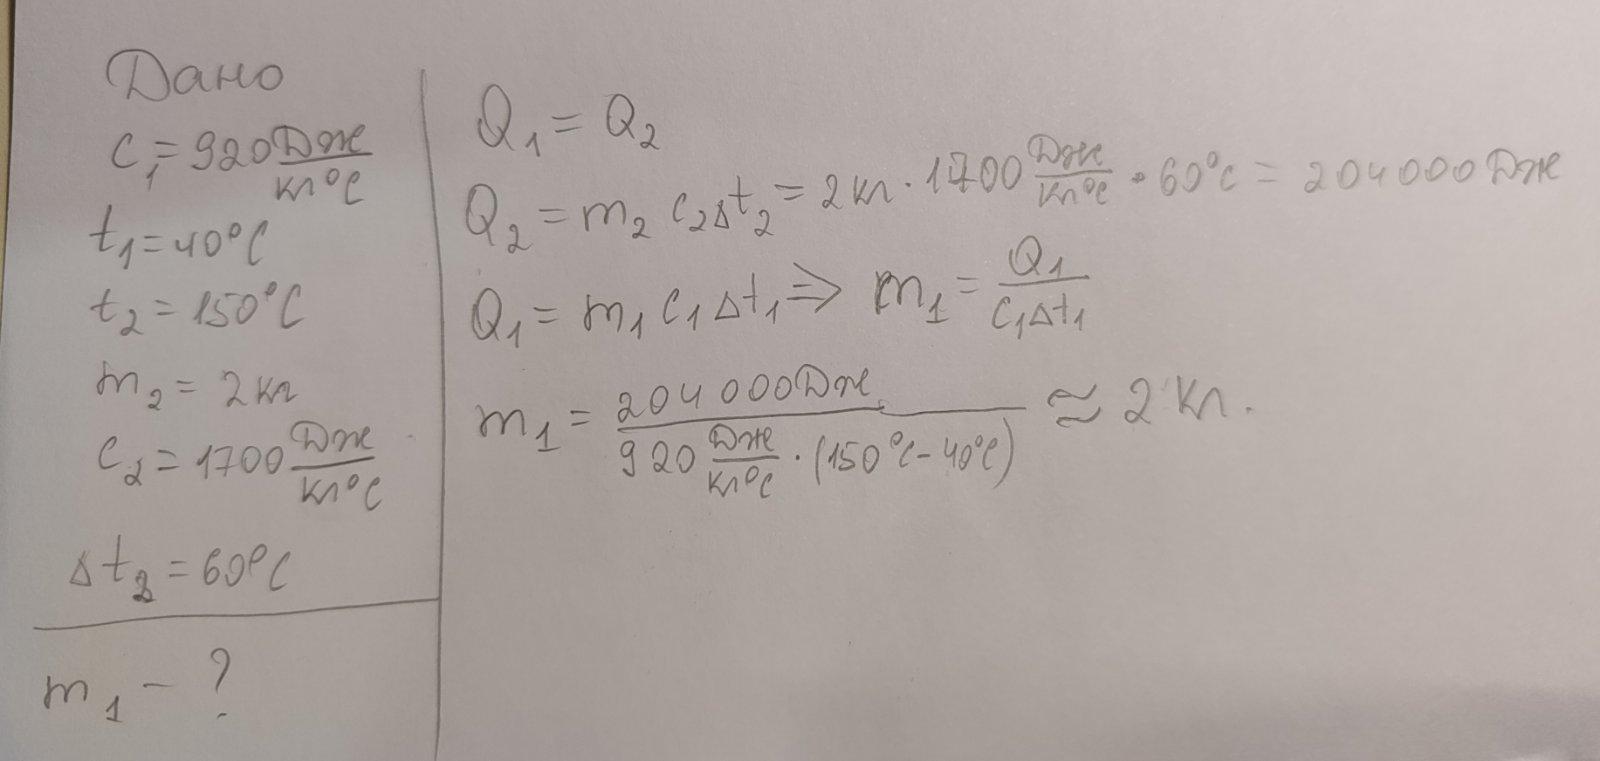 Дано
c₁ = 920 Дж/кг°C
t₁ = 40°C
t₂ = 150°C
m₂ = 2 кг
c₂ = 1700 Дж/кг°C
Δt₂ = 60°C
m₁ - ?
Q₁ = Q₂
Q₂ = m₂ c₂ Δt₂ = 2 кг · 1700 Дж/кг°C · 60°C = 204000 Дж
Q₁ = m₁ c₁ Δt₁ ⇒ m₁ = Q₁/c₁Δt₁
m₁ = 204000 Дж / 920 Дж/кг°C · (150°C - 40°C) ≈ 2 кг.